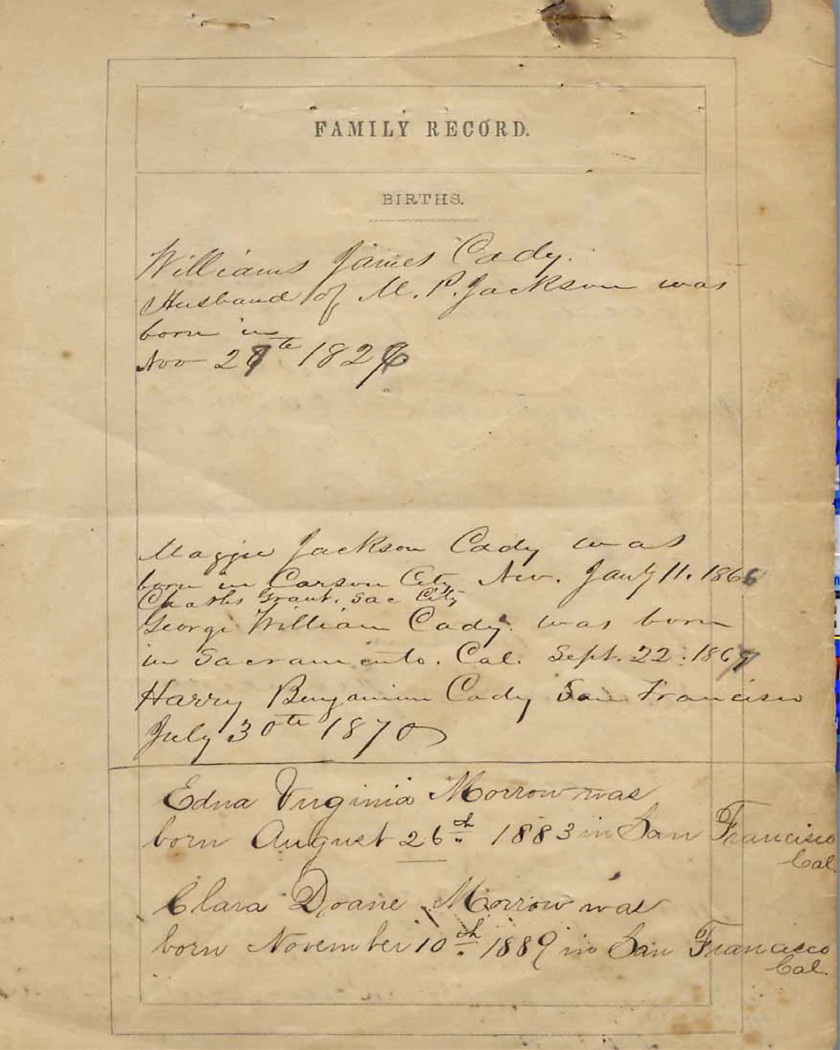 FAMILY RECORD.
BIRTHS.
Williams James Cady.
Husband of M. P. Jackson was
born in
Nov 2 th 182
Maggie Jackson Cady was
born in Carson City Nev. Jany 11. 186
Charls Grant. Sac City
George William Cady. was born
in Sacramento. Cal. Sept. 22. 186
Harry Benjamin Cady San Francisco
July 30th 1870
Edna Virginia Morrow was
born August 26th 1883 in San Francisco
Cal.
Clara Doane Morrow was
born November 10th 1889 in San Francisco
Cal.